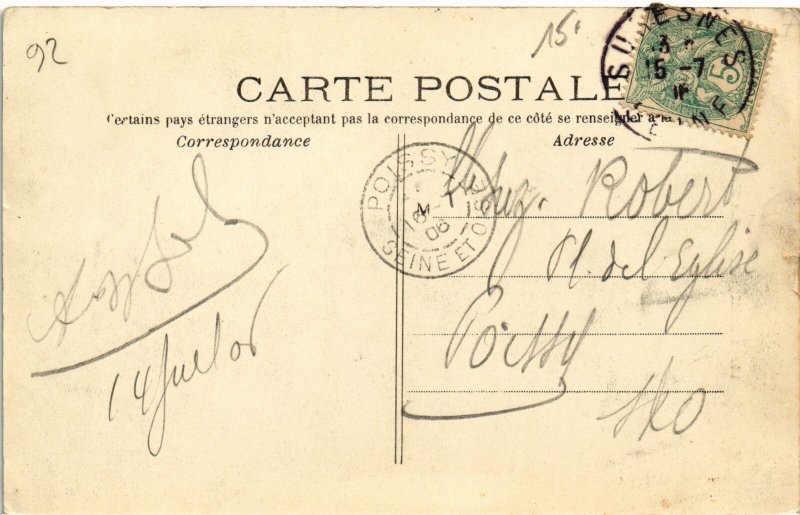 92
15.
CARTE POSTALE
Certains pays étrangers n'acceptant pas la correspondance de ce côté se renseigner à la
Correspondance
Adresse
SURESNES
15 -7
SEINE
5
POISSY
M
16 -7
06
SEINE ET OISE
Robert
Pl. de l'Eglise
Poissy
S&O
14 Juil 06